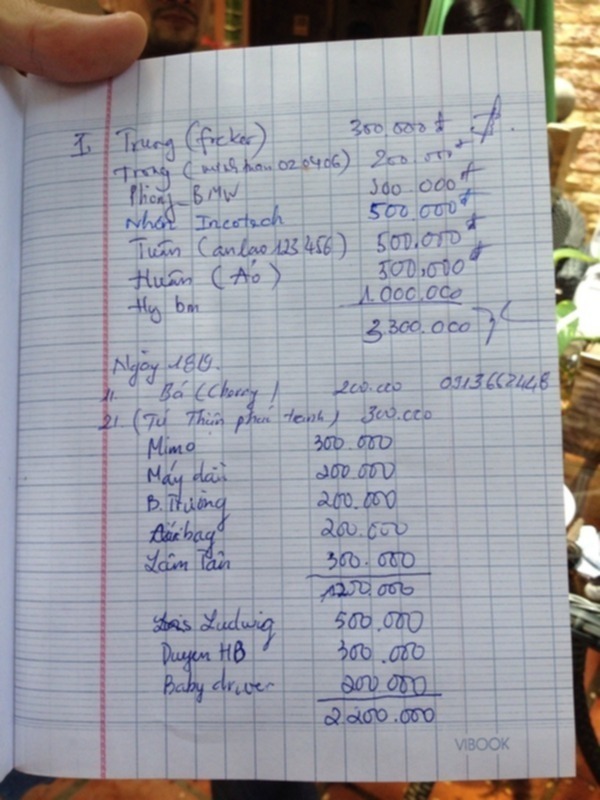 I. Trung (freker) 300.000đ
Trong (minhman020406) 200.000đ
Phong_BMW 300.000đ
Nhân Incotech 500.000đ
Tuấn (anlao123456) 500.000đ
Huấn (Áo) 500.000đ
Hy bm 1.000.000
3.300.000
Ngày 18/9.
1/. Bá (Cherry) 200.000
2/. (Tú Thiện phát thanh) 300.000
Mimo 300.000
Máy dài 200.000
B. Trường 200.000
bag 200.000
Lâm Tấn 300.000
1200.000
Ludwig 500.000
Duyen HB 300.000
Baby driver 200.000
2.200.000
VIBOOK